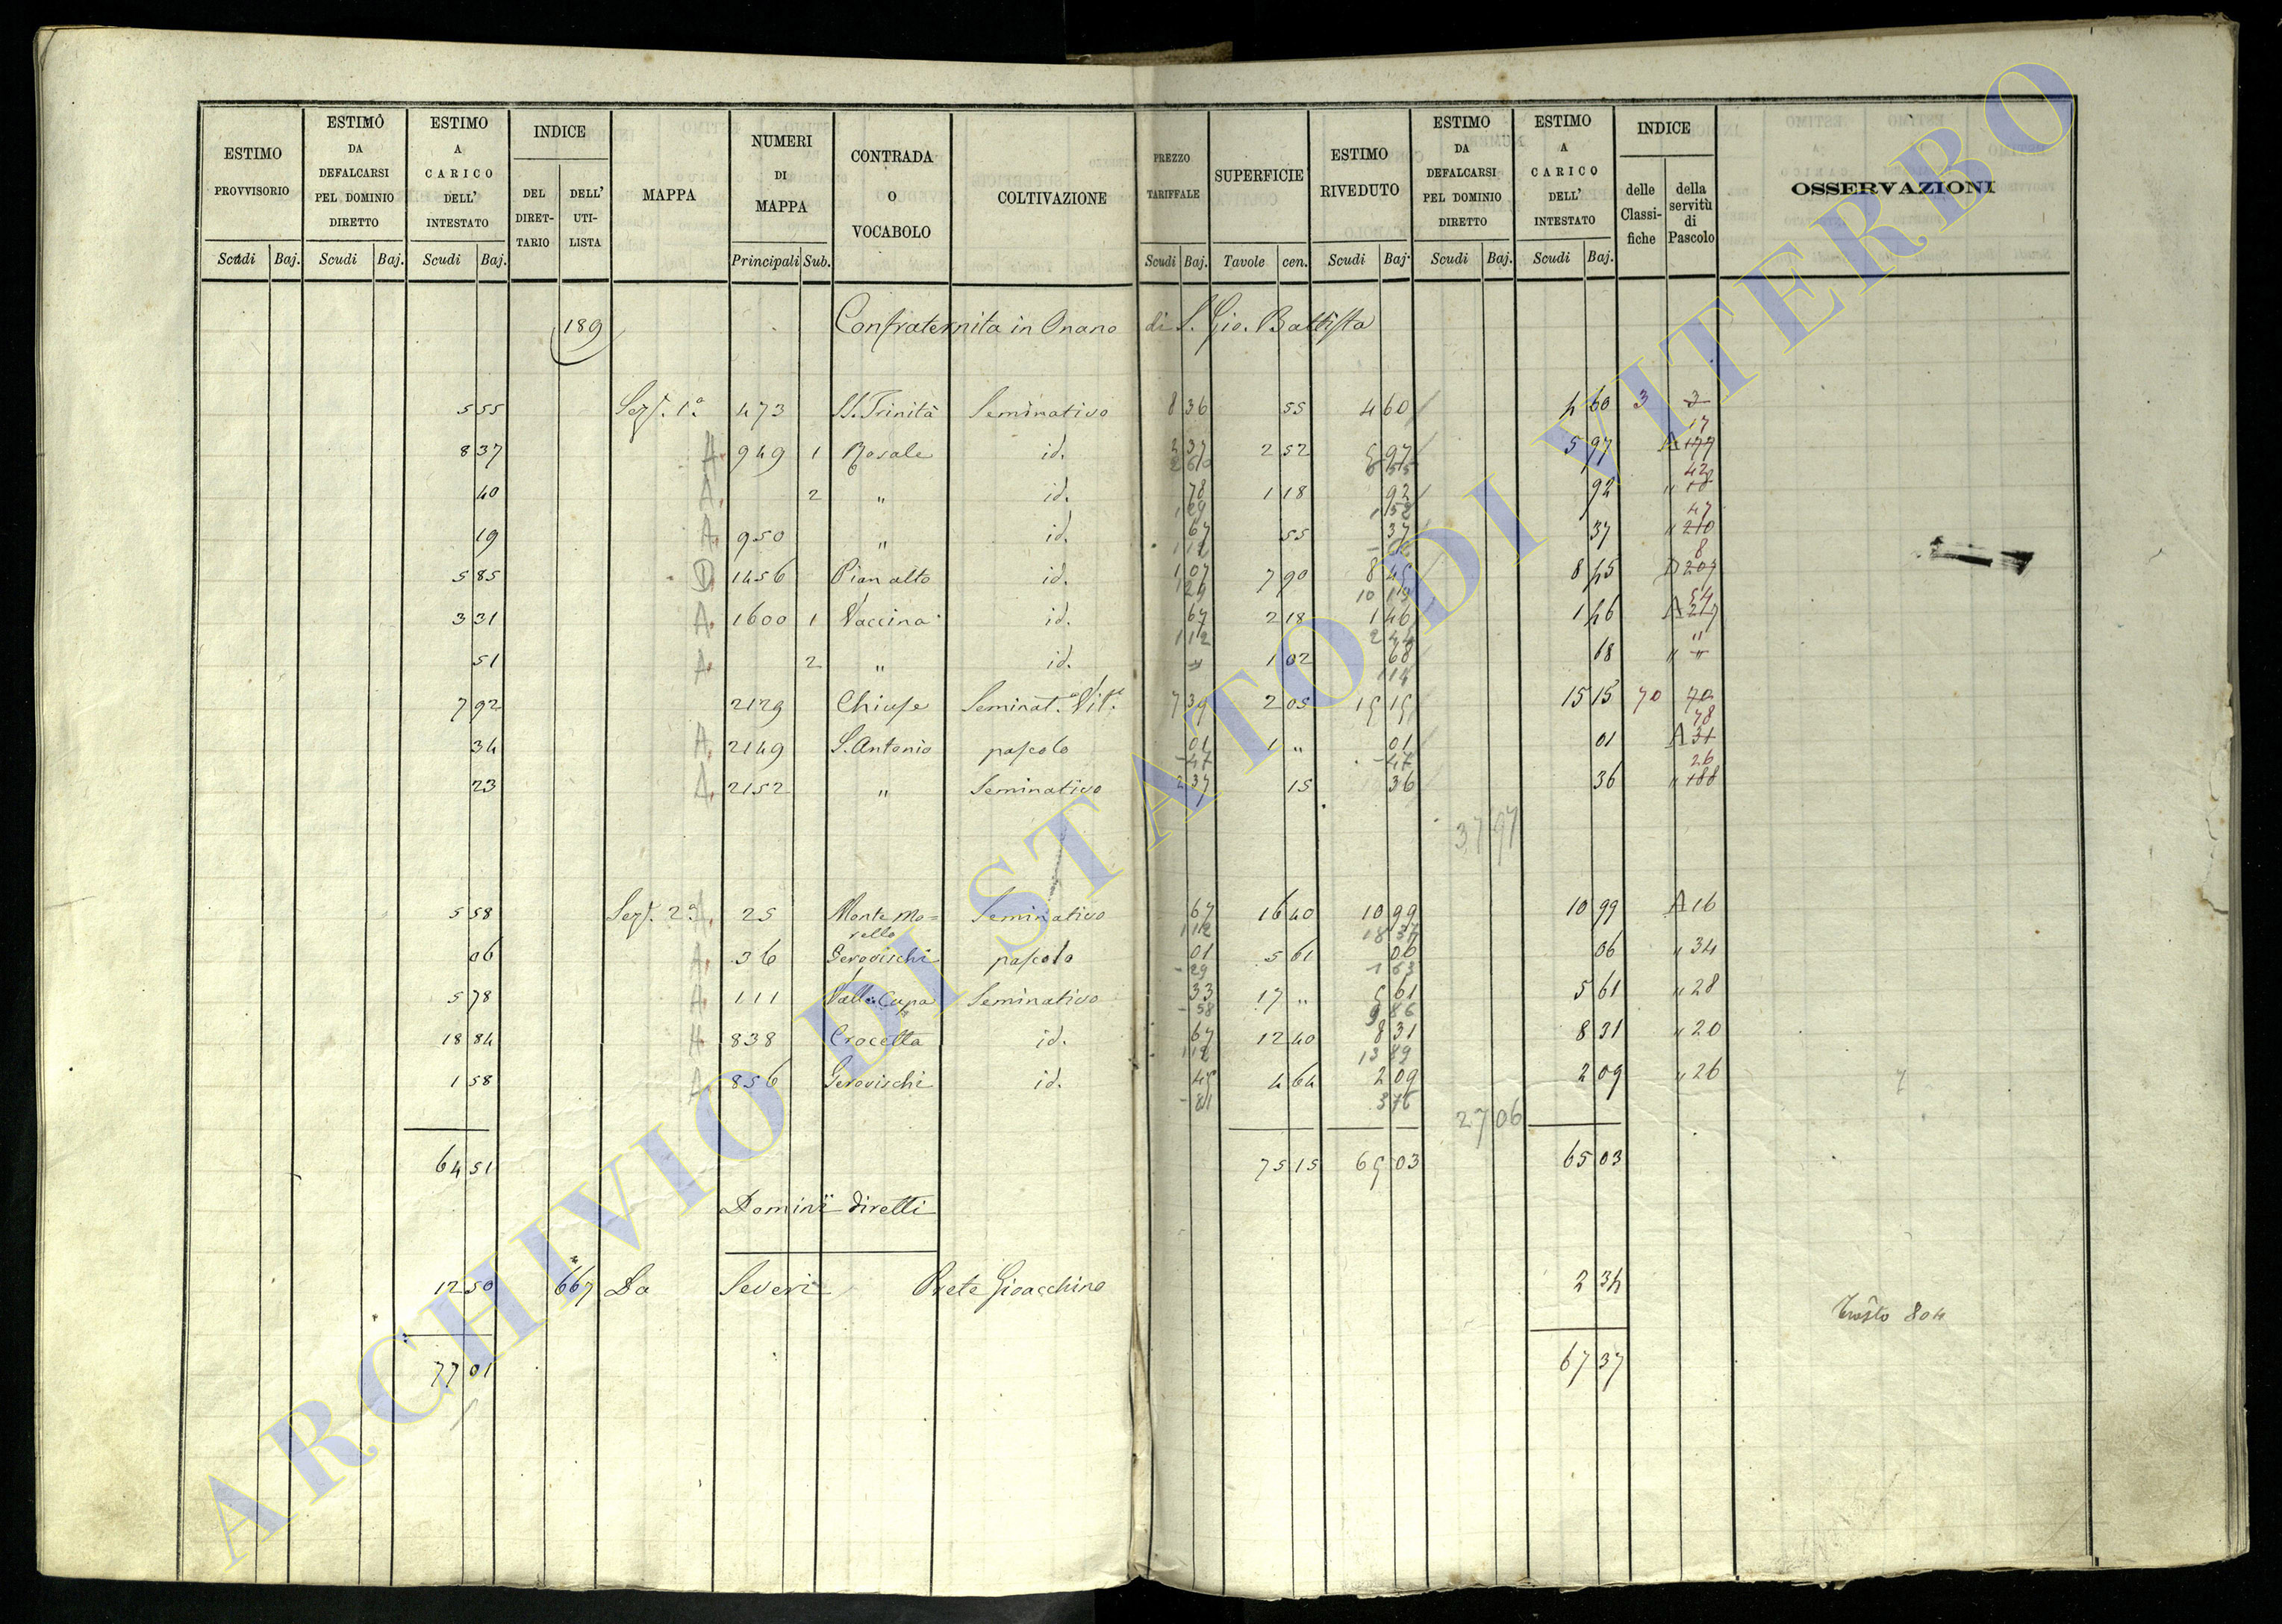 ESTIMO PROVVISORIO
ESTIMO DA DEFALCARSI PEL DOMINIO DIRETTO
ESTIMO A CARICO DELL' INTESTATO
INDICE
DEL DIRET-TARIO
DELL' UTI-LISTA
MAPPA
NUMERI DI MAPPA
CONTRADA O VOCABOLO
COLTIVAZIONE
PREZZO TARIFFALE
SUPERFICIE
ESTIMO RIVEDUTO
ESTIMO DA DEFALCARSI PEL DOMINIO DIRETTO
ESTIMO A CARICO DELL' INTESTATO
INDICE
delle Classi-fiche
della servitù di Pascolo
OSSERVAZIONI
Scudi Baj. Scudi Baj. Scudi Baj. Principali Sub. Scudi Baj. Tavole cen. Scudi Baj. Scudi Baj. Scudi Baj.
189 Confraternita in Onano di S. Gio. Battista
5 55 Sez. 1a 473 SS. Trinità Seminativo 8 36 55 4 60 4 60 3 3
17
8 37 A. 949 1 Rosale id. 2 37 2 52 5 97 5 97 A 177
42
40 A. 2 " id. 78 1 18 92 92 "
1 29 1 52 47
19 A. 950 " id. 67 55 37 37 " 210
1 12 8
5 85 D. 1456 Pian alto id. 1 07 7 90 8 45 8 45 D 207
1 29 10 19 54
3 31 A. 1600 1 Vaccina id. 67 2 18 1 46 1 46 A 217
1 12 2 44 "
51 A. 2 " id. " 1 02 68 68 " "
1 14
7 92 2129 Chiuse Seminat.o Vit.o 7 39 2 05 15 15 15 15 70 70
78
34 A. 2149 S. Antonio pascolo 01 1 " 01 01 A 31
- 47 - 47 26
23 A. 2152 " Seminativo 2 37 15 36 36 " 188
37 97
5 58 Sez. 2a A. 25 Monte Mo= Seminativo 67 16 40 10 99 10 99 A 16
rello 1 12 18 37
06 A. 36 Gerovischi pascolo 01 5 61 06 06 " 34
- 29 1 63
5 78 A. 111 Valle Cupa Seminativo 33 17 " 5 61 5 61 " 28
- 58 9 86
18 84 A. 838 Crocetta id. 67 12 40 8 31 8 31 " 20
1 12 13 89
1 58 A 856 Gerovischi id. 45 4 64 2 09 2 09 " 26
- 81 3 76
27 06
64 51 75 15 65 03 65 03
Dominii diretti
12 50 667 Da Severi Prete Gioacchino 2 34
804
77 01 67 37
ARCHIVIO DI STATO DI VITERBO